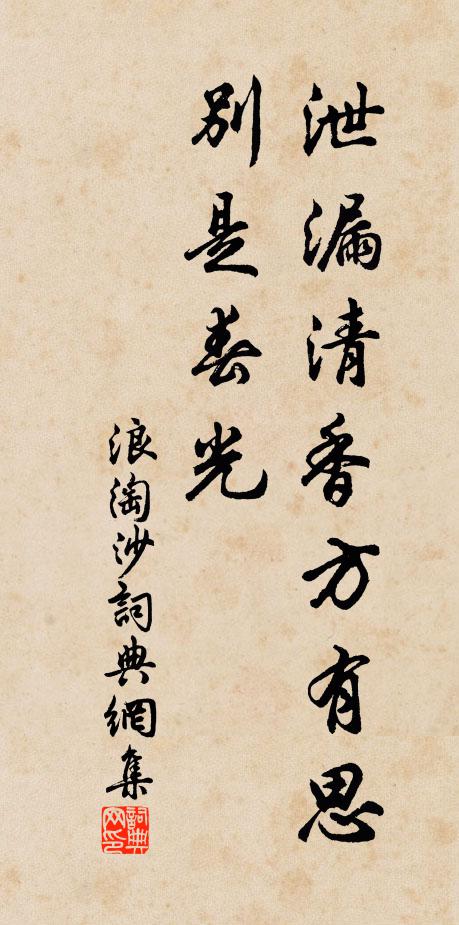 泄漏清香方有思
別是春光
浪淘沙詞典網集
詞典网印